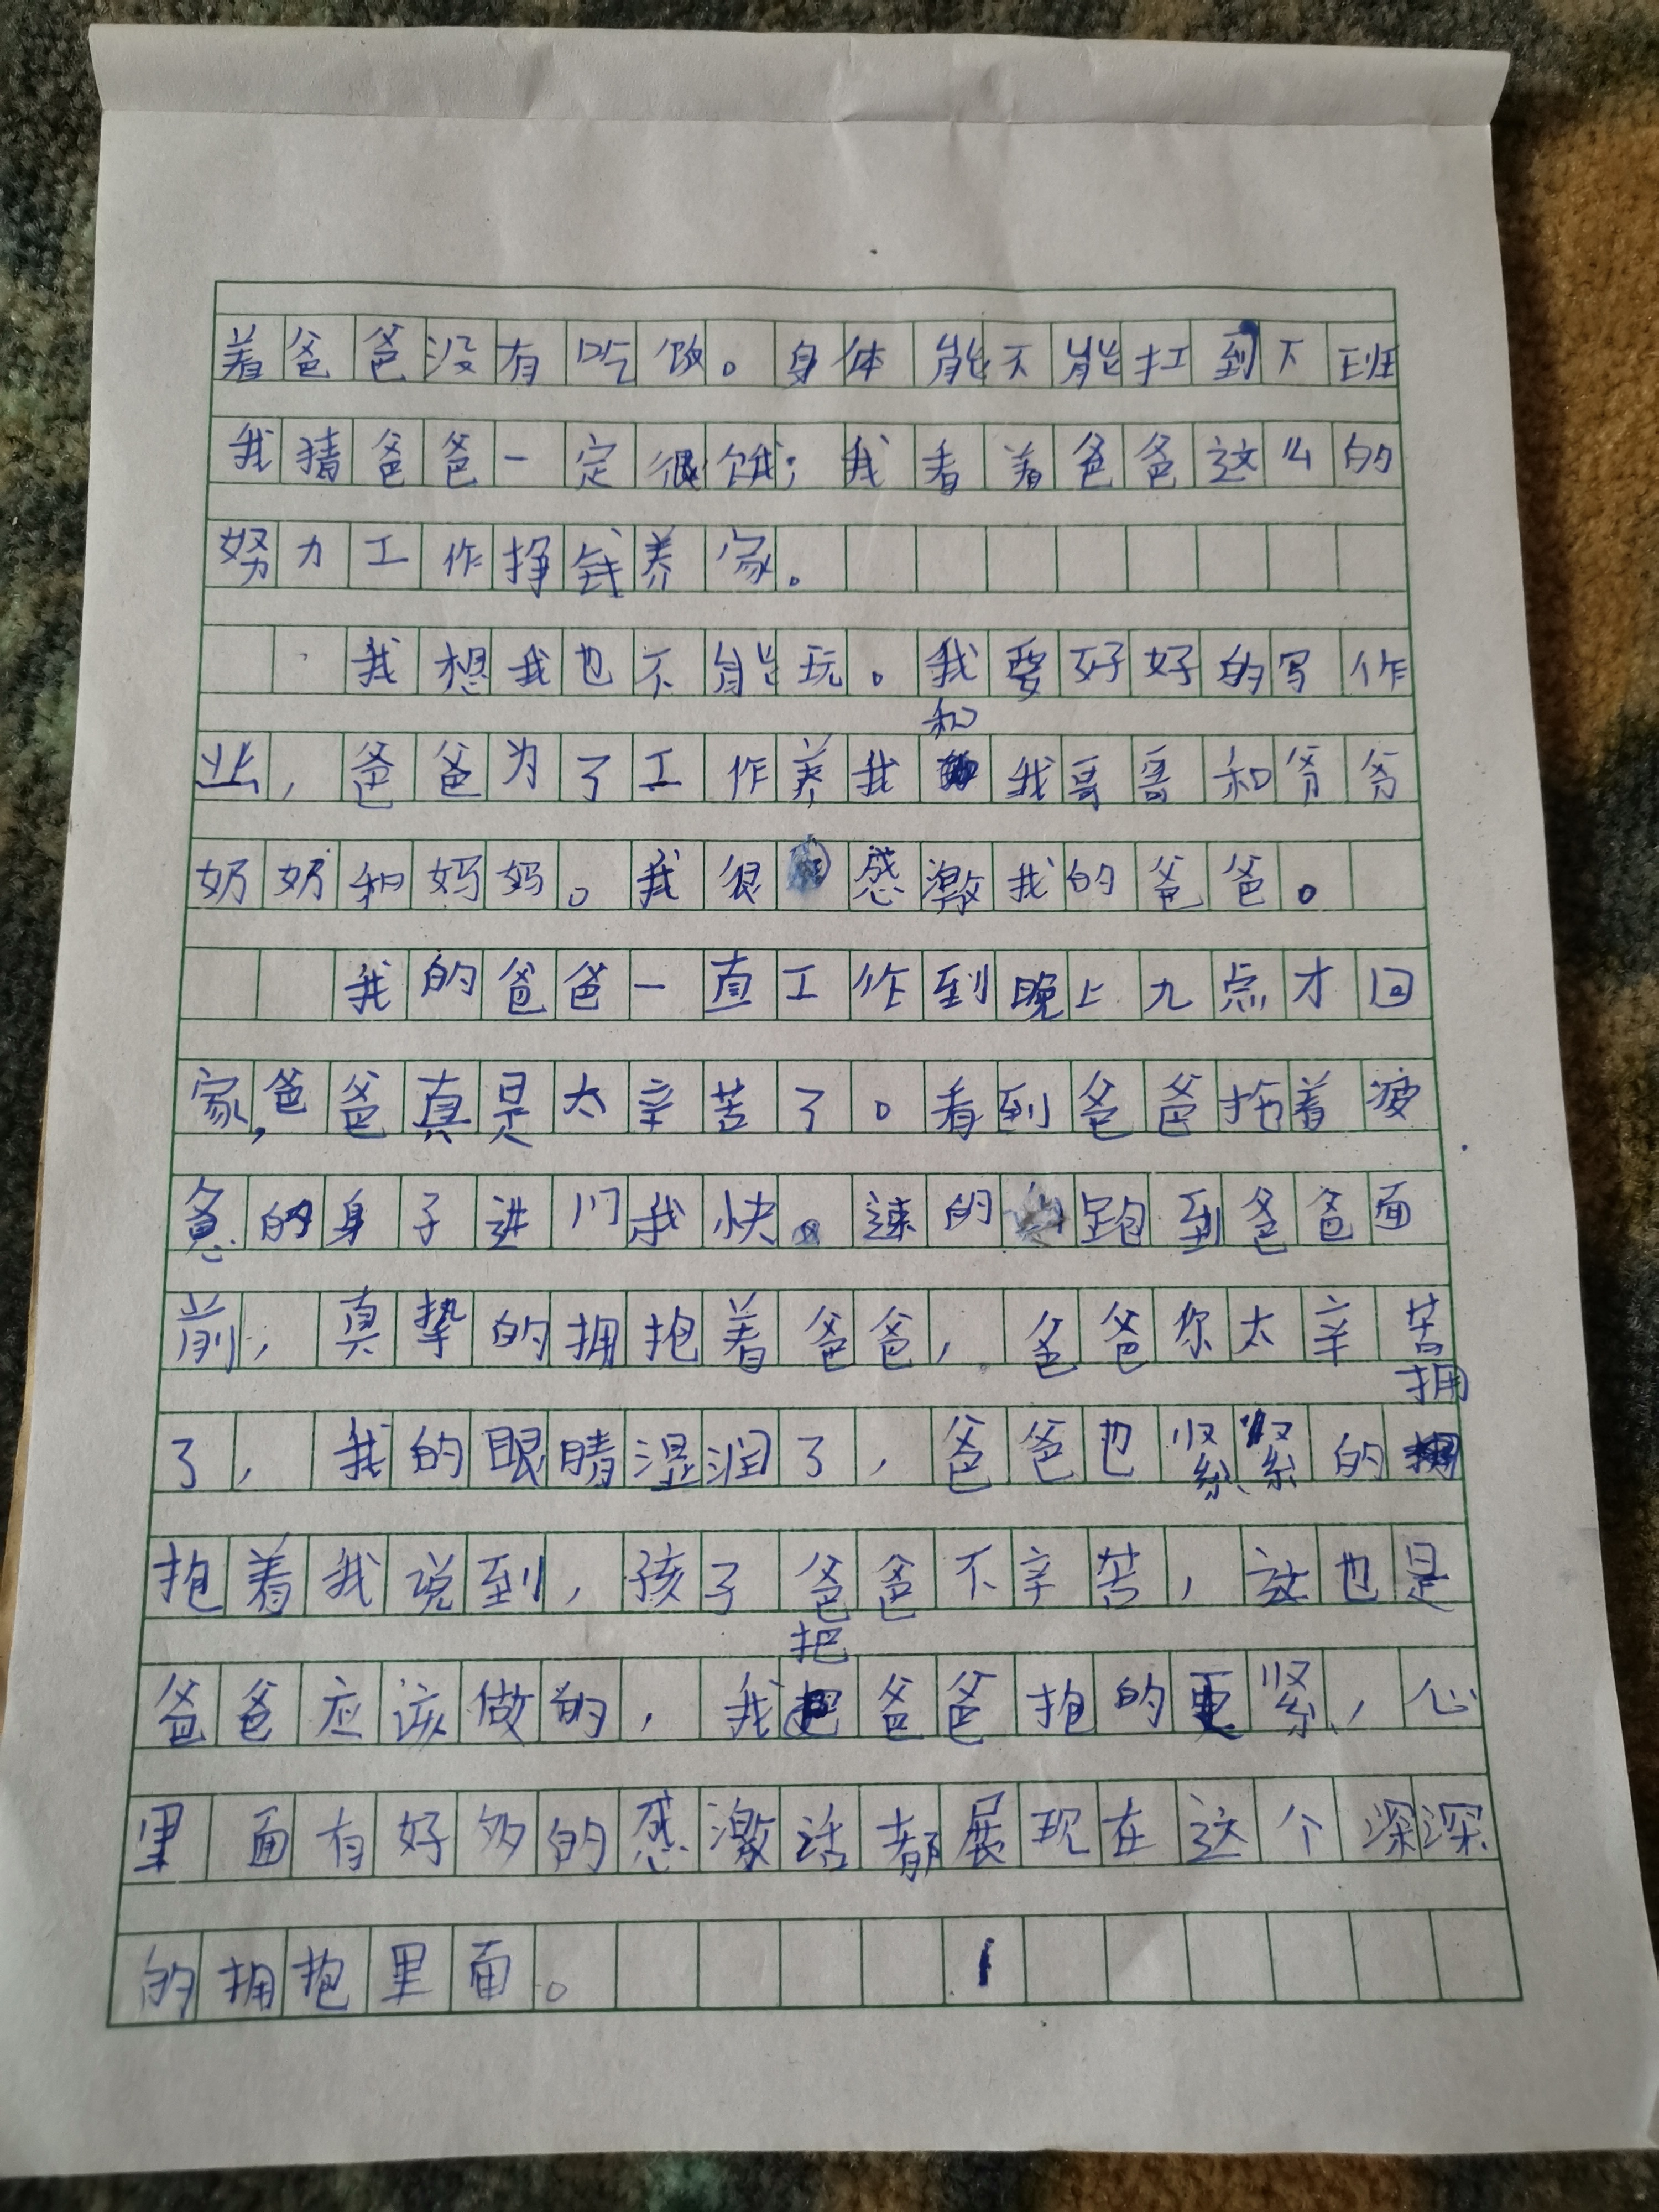 着爸爸没有吃饭。身体能不能扛到下班
我猜爸爸一定很饿；我看着爸爸这么的
努力工作挣钱养家。
我想我也不能玩。我要好好的写作
业，爸爸为了工作养我和我哥哥和爷爷
奶奶和妈妈。我很感激我的爸爸。
我的爸爸一直工作到晚上九点才回
家，爸爸真是太辛苦了。看到爸爸拖着疲
惫的身子进门我快速的跑到爸爸面
前，真挚的拥抱着爸爸，爸爸你太辛苦
了，我的眼睛湿润了，爸爸也紧紧的拥
抱着我说到，孩子爸爸不辛苦，这也是
爸爸应该做的，我把爸爸抱的更紧，心
里面有好多的感激话都展现在这个深深
的拥抱里面。